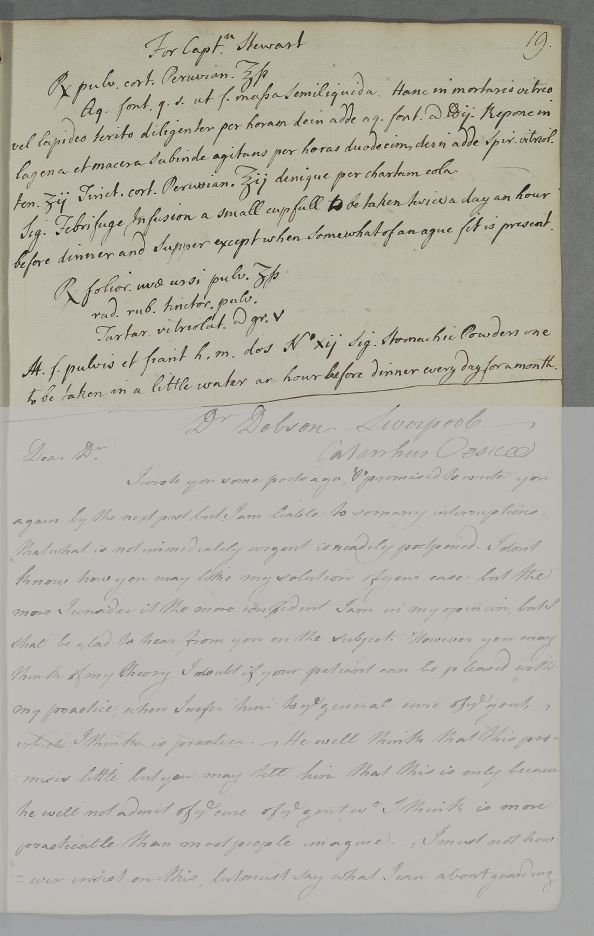 19.
For Captn Stewart
℞ pulv. cort. Peruvian. ℥ſs
Aq. font. q. s. ut f. maſsa Semiliquida. Hanc in mortario vitreo
vel lapideo terito diligenter per horam dein adde aq. font. a ℔ij. Repone in
lagena et macera Subinde agitans per horas duodecim, dein adde Spir. vitriol.
ten. ʒij Tinct. cort. Peruvian. ℥ij denique per chartam cola.
Sig. Febrifuge Infusion a small cupfull to be taken twice a day an hour
before dinner and Supper except when somewhat of an ague fit is present.
℞ folior. uvæ ursi pulv. ℥ſs
rad. rub. tinctor. pulv.
Tartar. vitriolat. a gr. v
M. f. pulvis et fiant h. m. dos No xij Sig. Stomachic Powders one
to be taken in a little water an hour before dinner every day for a month.
Dr Dobson. Liverpool.
Catarrhus Vesicæ
Dear Dr
I wrote you some posts ago, & promised to write you
again by the next post but I am liable to so many interruptions,
that what is not immediately urgent is readily postponed. I dont
know how you may like my solution of your case but the
more I consider it the more confident I am in my opinion, but I
shal be glad to hear from you on the subject. However you may
think of my theory I doubt if your patient can be pleased with
my practice, when I refer him to ye general cure of ye gout,
which I think is practica. He will think that this pro-
=mises little but you may tell him that this is only because
he will not admit of ye cure of ye gout, wc I think is more
practicable than most people imagine. I must not how
=ever insist on this, but must say what I can about guarding